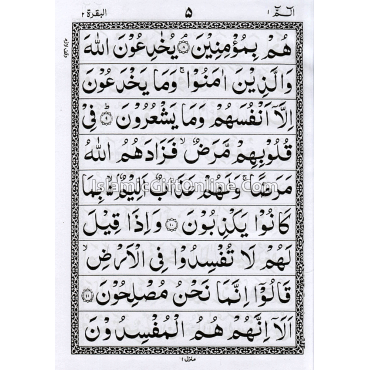 الٓمّٓ ١ ٥ البقرة ٢
هُمْ بِمُؤْمِنِيْنَ ۘ﴿٨﴾ يُخٰدِعُوْنَ اللّٰهَ
وَالَّذِيْنَ اٰمَنُوْا ۚ وَمَا يَخْدَعُوْنَ
اِلَّاۤ اَنْفُسَهُمْ وَمَا يَشْعُرُوْنَ ؕ﴿٩﴾ فِيْ
قُلُوْبِهِمْ مَّرَضٌ ۙ فَزَادَهُمُ اللّٰهُ
مَرَضًا ۚ وَلَهُمْ عَذَابٌ اَلِيْمٌۢ ۙ۬ بِمَا
كَانُوْا يَكْذِبُوْنَ ﴿١٠﴾ وَاِذَا قِيْلَ
لَهُمْ لَا تُفْسِدُوْا فِى الْاَرْضِ ۙ
قَالُوْۤا اِنَّمَا نَحْنُ مُصْلِحُوْنَ ﴿١١﴾
اَلَاۤ اِنَّهُمْ هُمُ الْمُفْسِدُوْنَ
منزل ١
IslamicGiftOnline.Com